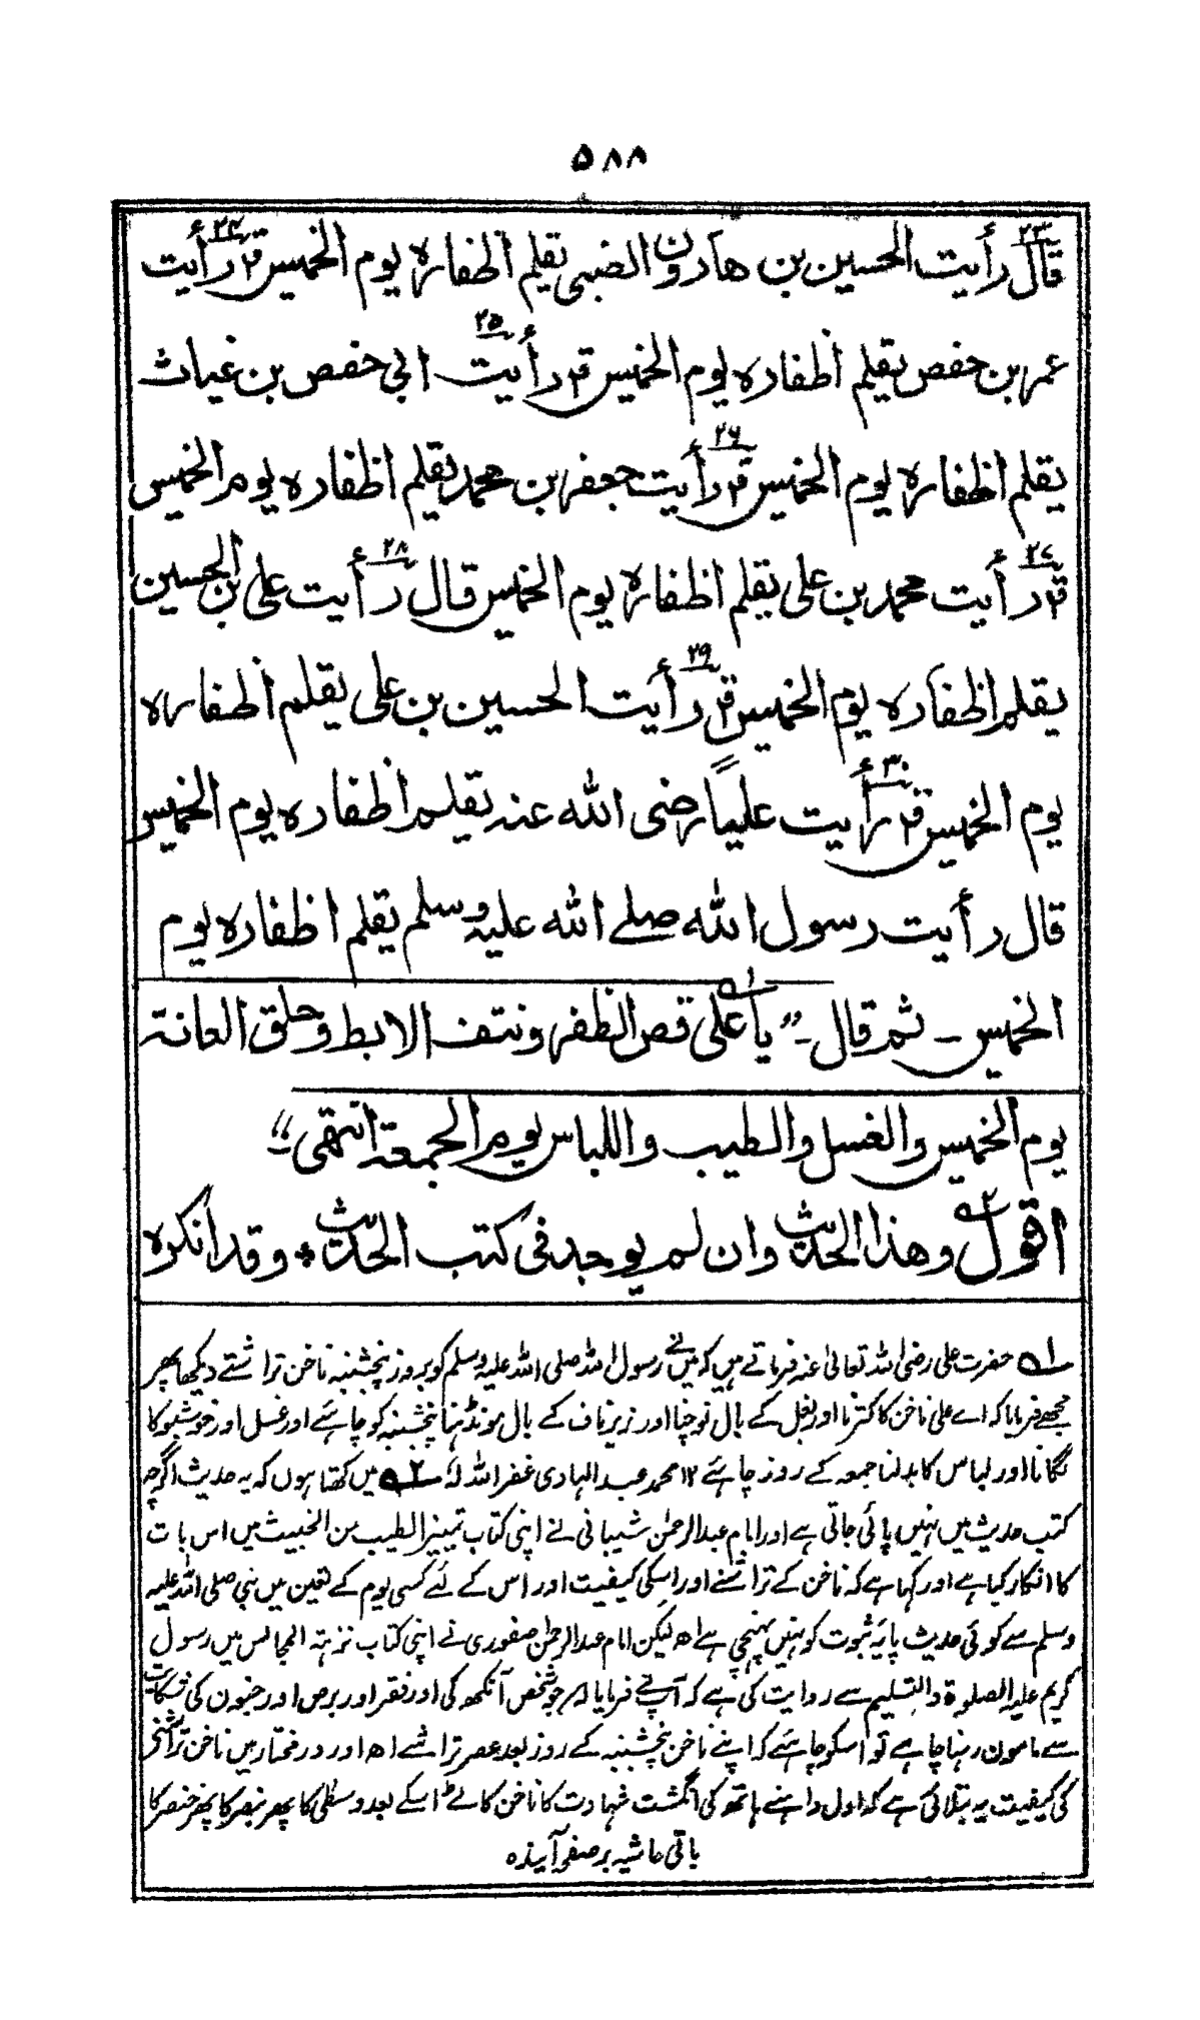 ۵۸۸
۲۳ ۲۴
قال رأيت الحسين بن هارون الضبي يقلم اظفاره يوم الخميس قال رأيت
۲۵
عمر بن حفص يقلم اظفاره يوم الخميس قال رأيت ابي حفص بن غياث
۲۶
يقلم اظفاره يوم الخميس قال رأيت جعفر بن محمد يقلم اظفاره يوم الخميس
۲۷ ۲۸
قال رأيت محمد بن علی يقلم اظفاره يوم الخميس قال رأيت علی بن الحسين
۲۹
يقلم اظفاره يوم الخميس قال رأيت الحسين بن علی يقلم اظفاره
۳۰
يوم الخميس قال رأيت علياً رضی الله عنه يقلم اظفاره يوم الخميس
قال رأيت رسول الله صلے الله عليه وسلم يقلم اظفاره يوم
الخميس ـ ثم قال ـ ”يا علی ۱ه قص الظفر ونتف الابط وحلق العانة
يوم الخميس والغسل والطيب واللباس يوم الجمعة انتهی“
اقول ۲ه وهذا الحديث وان لم يوجد فی كتب الحديث * وقد انكره
۱ه حضرت علی رضی اللہ تعالی عنہ فرماتے ہیں کہ میں نے رسول اللہ صلی اللہ علیہ وسلم کو بروز پنجشنبہ ناخن تراشتے دیکھا پھر
مجھسے فرمایا کہ اے علی ناخن کا کترنا اور بغل کے بال نوچنا اور زیر ناف کے بال مونڈہنا پنجشنبہ کو چاہئے اور غسل اور خوشبو کا
لگانا اور لباس کا بدلنا جمعہ کے روز چاہئے ۱۲ محمد عبد الہادی غفر اللہ لہٗ ۲ه میں کہتا ہوں کہ یہ حدیث اگرچہ
کتب حدیث میں نہیں پائی جاتی ہے اور امام عبدالرحمٰن شیبانی نے اپنی کتاب تمییز الطیب من الخبیث میں اس بات
کا انکار کیا ہے اور کہا ہے کہ ناخن کے تراشنے اور اسکی کیفیت اور اس کے لئے کسی یوم کے تعین میں نبی صلی اللہ علیہ
وسلم سے کوئی حدیث پایۂ ثبوت کو نہیں پہنچی ہے اھ لیکن امام عبدالرحمٰن صفوری نے اپنی کتاب نزہتہ المجالس میں رسول
کریم علیہ الصلوۃ والتسلیم سے روایت کی ہے کہ آپ نے فرمایا کہ جو شخص آنکھ کی اور فقر اور برص اور جنون کی شکایت
سے مامون رہنا چاہے تو اسکو چاہئے کہ اپنے ناخن پنجشنبہ کے روز بعد عصر تراشے اھ اور در مختار میں ناخن تراشنے
کی کیفیت یہ بتلائی ہے کہ اول داہنے ہاتھ کی انگشت شہادت کا ناخن کاٹے اسکے بعد وسطی کا پھر بنصر کا پھر خنصر کا
باقی حاشیہ بر صفحہ آیندہ